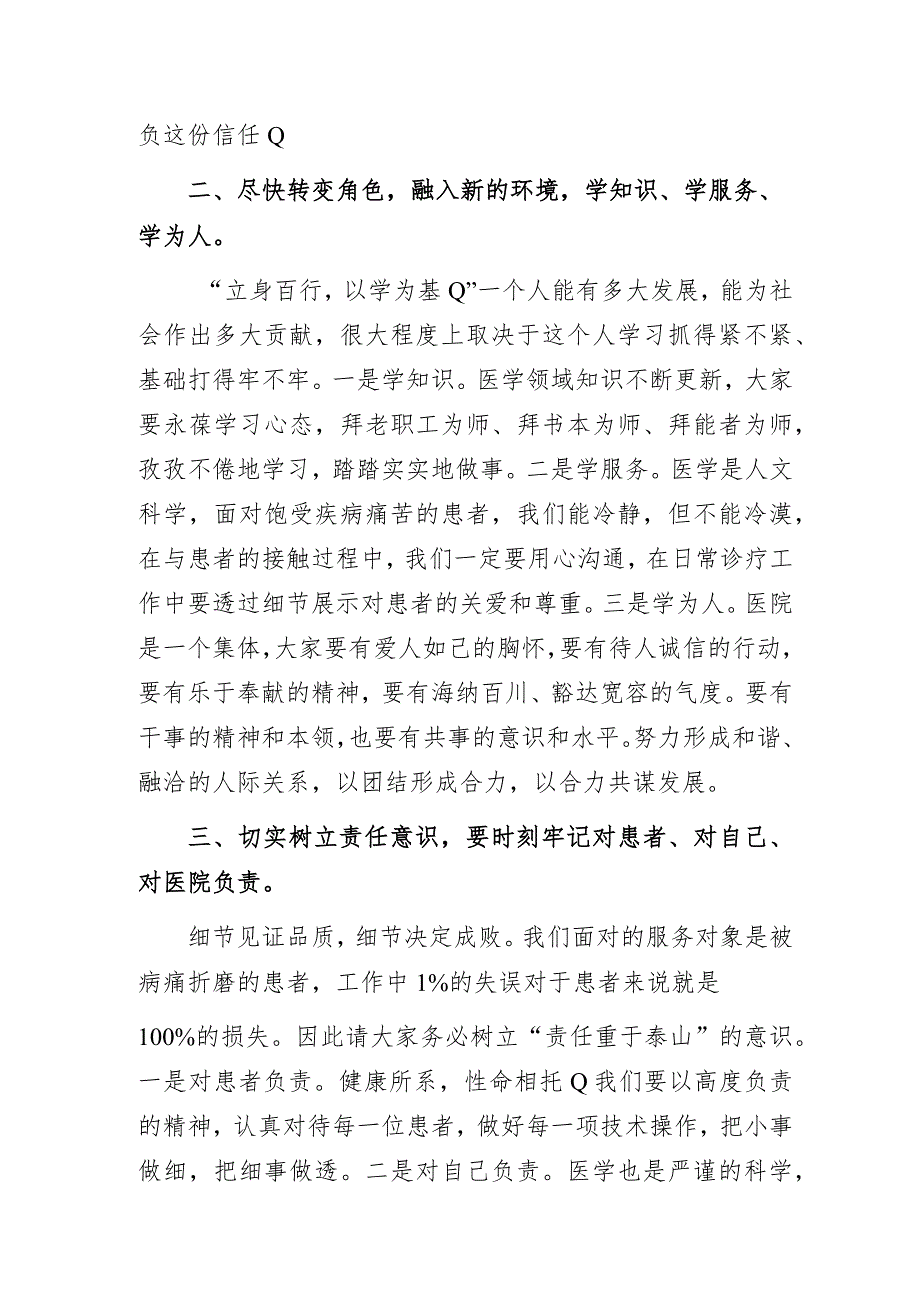 负这份信任 Q
二、尽快转变角色，融入新的环境，学知识、学服务、
学为人。
“立身百行，以学为基 Q”一个人能有多大发展，能为社
会作出多大贡献，很大程度上取决于这个人学习抓得紧不紧、
基础打得牢不牢。一是学知识。医学领域知识不断更新，大家
要永葆学习心态，拜老职工为师、拜书本为师、拜能者为师，
孜孜不倦地学习，踏踏实实地做事。二是学服务。医学是人文
科学，面对饱受疾病痛苦的患者，我们能冷静，但不能冷漠，
在与患者的接触过程中，我们一定要用心沟通，在日常诊疗工
作中要透过细节展示对患者的关爱和尊重。三是学为人。医院
是一个集体，大家要有爱人如己的胸怀，要有待人诚信的行动，
要有乐于奉献的精神，要有海纳百川、豁达宽容的气度。要有
干事的精神和本领，也要有共事的意识和水平。努力形成和谐、
融洽的人际关系，以团结形成合力，以合力共谋发展。
三、切实树立责任意识，要时刻牢记对患者、对自己、
对医院负责。
细节见证品质，细节决定成败。我们面对的服务对象是被
病痛折磨的患者，工作中 1%的失误对于患者来说就是
100%的损失。因此请大家务必树立“责任重于泰山”的意识。
一是对患者负责。健康所系，性命相托 Q 我们要以高度负责
的精神，认真对待每一位患者，做好每一项技术操作，把小事
做细，把细事做透。二是对自己负责。医学也是严谨的科学，